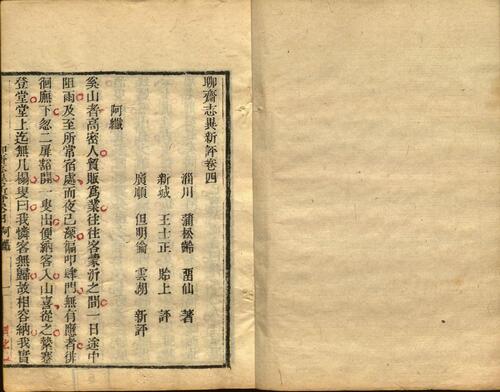 聊齋志異新評卷四
淄川 蒲松齡 畱仙 著
新城 王士正 貽上 評
廣順 但明倫 雲湖 新評
阿纖
奚山者高密人貿販爲業往往客蒙沂之間一日途中
阻雨及至所常宿處而夜已深徧叩肆門無有應者徘
徊廡下忽二扉豁開一叟出便納客入山喜從之縶蹇
登堂堂上迄無几榻叟曰我憐客無歸故相容納我實
阿纖
一